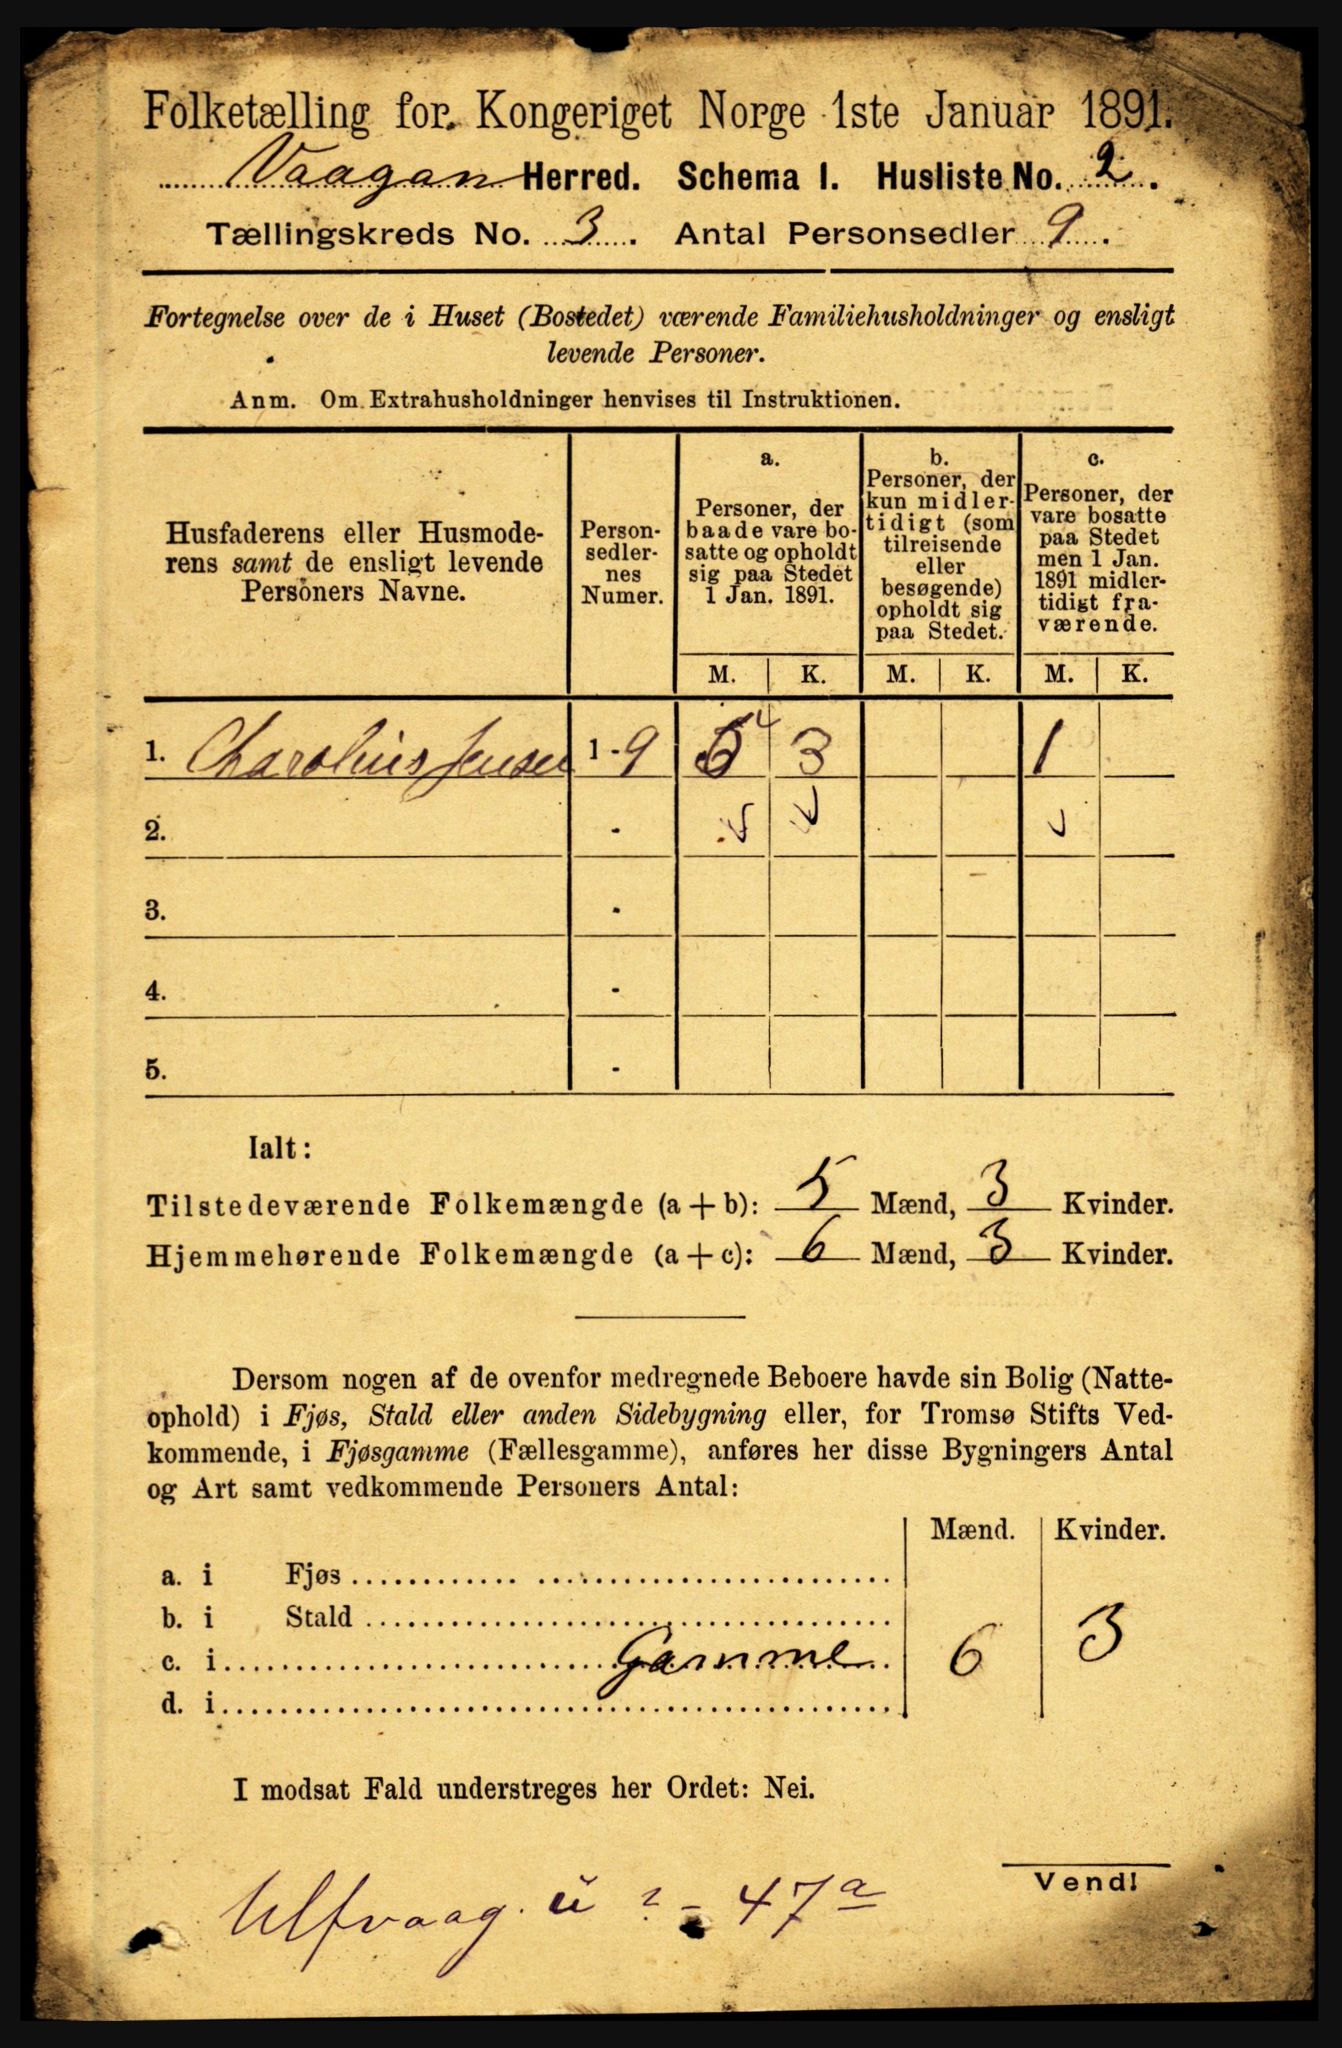 Folketælling for Kongeriget Norge 1ste Januar 1891.
Vaagan Herred. Schema 1. Husliste No. 2.
Tællingskreds No. 3. Antal Personsedler 9.
Fortegnelse over de i Huset (Bostedet) værende Familiehusholdninger og ensligt
levende Personer.
Anm. Om Extrahusholdninger henvises til Instruktionen.
Husfaderens eller Husmode-
rens samt de ensligt levende
Personers Navne.
Person-
sedler-
nes
Numer.
a.
Personer, der
baade vare bo-
satte og opholdt
sig paa Stedet
1 Jan. 1891.
b.
Personer, der
kun midler-
tidigt (som
tilreisende
eller
besøgende)
opholdt sig
paa Stedet.
c.
Personer, der
vare bosatte
paa Stedet
men 1 Jan.
1891 midler-
tidigt fra-
værende.
M. K. M. K. M. K.
1. Charolius Jensen 1 - 9 5 3 1
2. -
3. -
4. -
5. -
Ialt:
Tilstedeværende Folkemængde (a + b): 5 Mænd, 3 Kvinder.
Hjemmehørende Folkemængde (a + c): 6 Mænd, 3 Kvinder.
Dersom nogen af de ovenfor medregnede Beboere havde sin Bolig (Natte-
ophold) i Fjøs, Stald eller anden Sidebygning eller, for Tromsø Stifts Ved-
kommende, i Fjøsgamme (Fællesgamme), anføres her disse Bygningers Antal
og Art samt vedkommende Personers Antal:
Mænd. Kvinder.
a. i Fjøs
b. i Stald
c. i Gamme 6 3
d. i
I modsat Fald understreges her Ordet: Nei.
Vend!
Ulfvaag. u ? - 47a